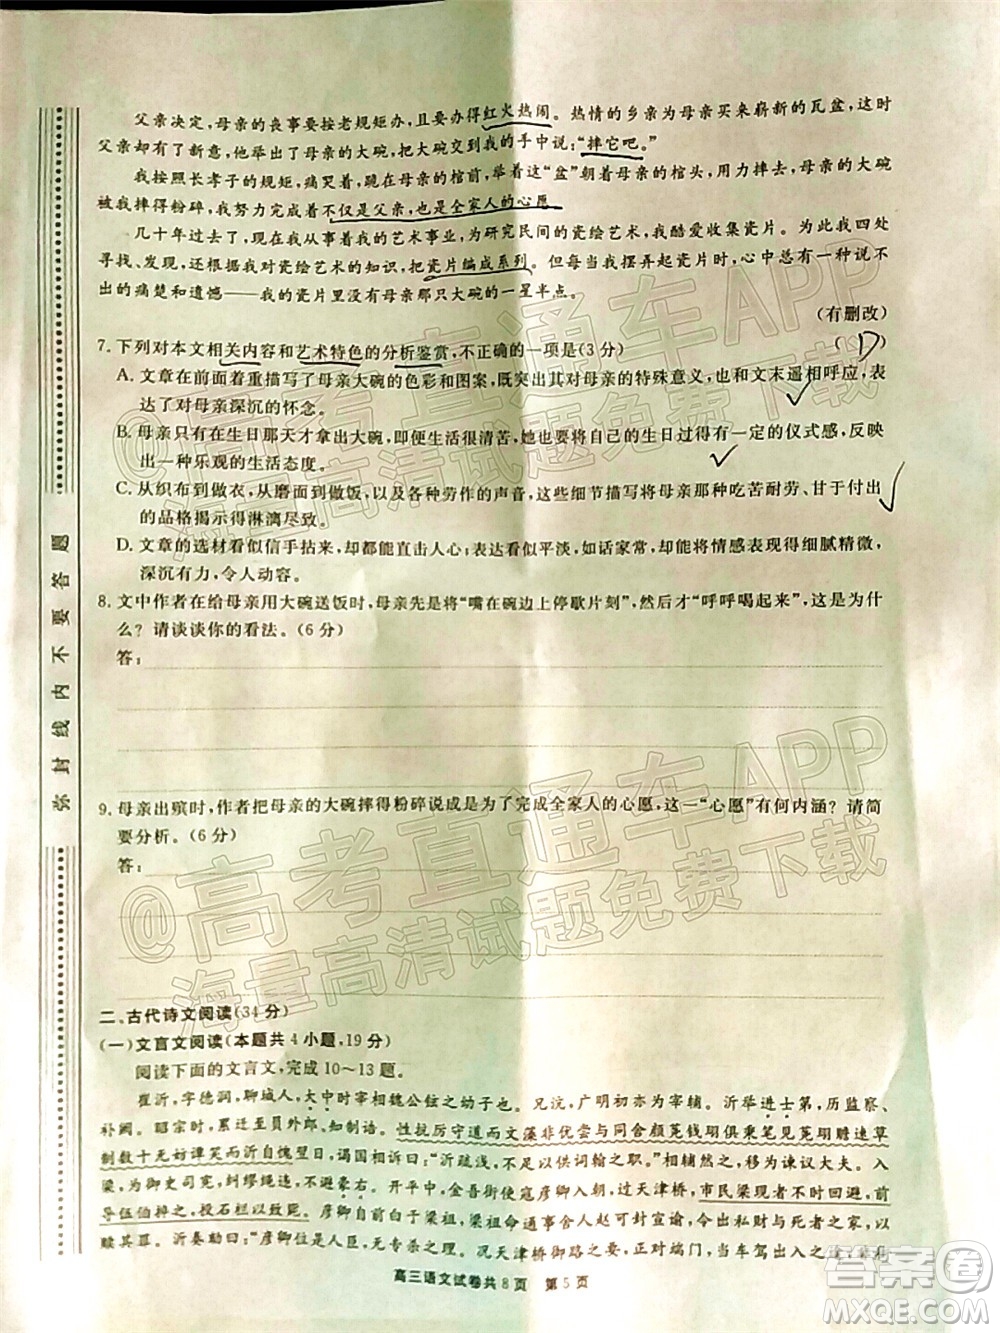 父亲决定,母亲的丧事要按老规矩办,且要办得红火热闹。热情的乡亲为母亲买来崭新的瓦盆,这时
父亲却有了新意,他举出了母亲的大碗,把大碗交到我的手中说:“摔它吧。”
我按照长孝子的规矩,痛哭着,跪在母亲的棺前,举着“盆”朝着母亲的棺头摔去,母亲的大碗
被我摔得粉碎,我努力完成着不仅是父亲,也是全家人的心愿
几十年过去了,我从事着我的艺术事业,为研究民间的瓷绘艺术,我酷爱收集瓷片。为此我四处
寻找、发现、求教着我对瓷绘艺术的知识,把瓷片编成系列。但每当我摆弄起瓷片,心中总有一种说
不出的痛楚和遗憾——我的瓷片里没有母亲那只大碗的一星半点。
(有删改)
7. 下列对本文相关内容和艺术特色的分析鉴赏,不正确的一项是(3 分) ( D )
A. 文章在前面着重描写了母亲大碗的色彩和图案,既突出其对母亲的特殊意义,也和文末遥相呼应,表
达了对母亲深沉的怀念。
B. 母亲只有在生日那天才拿出大碗,即便生活很清苦,也要将自己的生日过得有一定的仪式感,反映
出一种乐观的生活态度。
C. 从织布到做衣,从磨面到做饭,以及各种劳作的声音,这些细节描写将母亲的吃苦耐劳、甘于付出
的品格揭示得淋漓尽致。
D. 文章的选材看似信手拈来,却都能直击人心;表达看似平淡,如话家常,却能将情感表现得细腻精微,
深沉有力,令人动容。
8. 文中作者在给母亲用大碗送饭时,母亲先是将“嘴在碗边上停歇片刻”,然后才“呼呼喝起来”,这是为什
么?请谈谈你的看法。(6 分)
答:
9. 母亲出殡时,作者把母亲的大碗摔得粉碎说成是为了完成全家人的心愿,这一“心愿”有何内涵?请简
要分析。(6 分)
答:
二、古代诗文阅读(34 分)
(一)文言文阅读(本题共 4 小题,19 分)
阅读下面的文言文,完成 10～13 题。
崔沂,字德润,聊城人,大中时宰相魏公铉之幼子也。兄沆,广明初亦为宰辅。沂举进士第,历监察、
补阙。昭宗时,累迁至员外郎、知制诰。性抗厉守道而文藻非优尝与同舍颜荛钱珝俱秉笔见荛珝赡速草
制数十无妨谭笑而沂自愧翌日,谒国相诉曰:“沂疏浅,不足以供词翰之职。”相辅然之,移为谏议大夫。入
梁,为御史司宪,纠缪绳违,不避豪右。开平中,金吾街使寇彦卿入朝,过天津桥,市民梁现者不时回避,前
导伍伯捽之,投石栏以致毙。彦卿自前白于梁祖,梁祖命通事舍人赵可封宣谕,令出私财与死者之家,以
赎其罪。沂奏劾曰:“彦卿位是人臣,无专杀之理。况天津桥御路之要,正对端门,当车驾出入之途,非街
高三语文试卷共 8 页　第 5 页
弥 封 线 内 不 要 答 题
@高考直通车APP
海量高清试题免费下载
@高考直通车APP
海量高清试题免费下载
答案圈
MXQE.COM